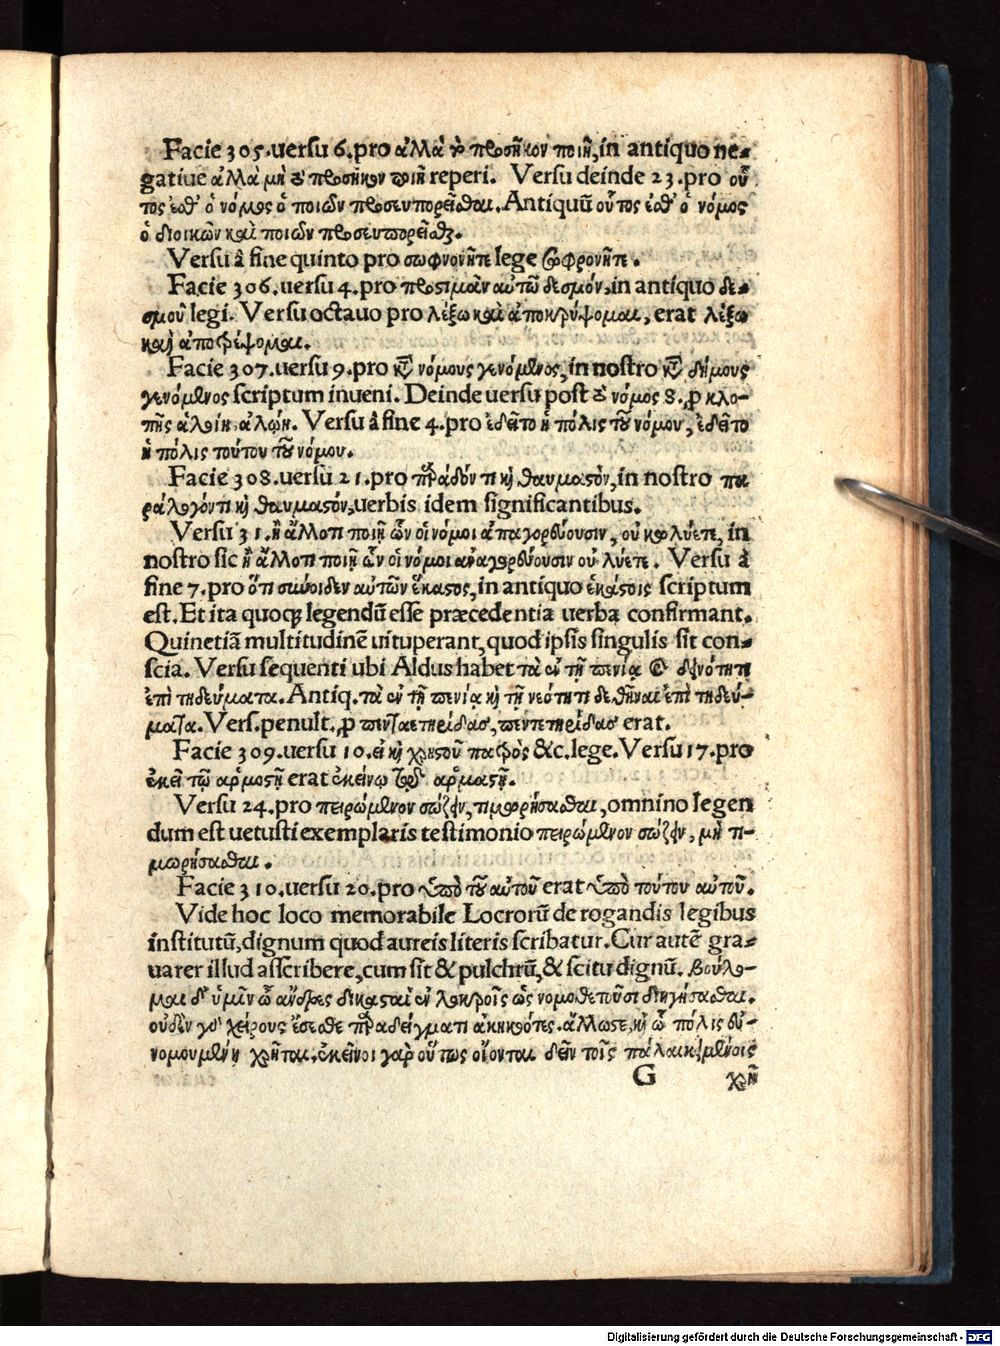 Facie 305. uersu 6. pro ἀλλὰ τὸ προσῆκον ποιῇ, in antiquo ne-
gatiue ἀλλὰ μὴ τὸ προσῆκον ποιῇ reperi. Versu deinde 23. pro οὗ
τος ἐσθ' ὁ νόμος ὁ ποιῶν προσευπορεῖσθαι. Antiquū οὗτος ἐσθ' ὁ νόμος
ὁ διοικῶν καὶ ποιῶν προσευπορεῖσθαι.
Versu â fine quinto pro σωφνονῆτε lege σωφρονῆτε.
Facie 306. uersu 4. pro προστιμᾶν αὐτῶ δεσμόν, in antiquo δε-
σμοῦ legi. Versu octauo pro λέξω καὶ ἀποκρύψομαι, erat λέξω
καὶ ἀποτρέψομαι.
Facie 307. uersu 9. pro κατὰ νόμους γενόμενος, in nostro κατὰ δήμους
γενόμενος scriptum inueni. Deinde uersu post ὁ νόμος 8. ꝓ κλο-
πῆς ἁλοίη, ἁλῶη. Versu â fine 4. pro ἐδεῖτο ἡ πόλις τοῦ νόμου, ἐδεῖτο
ἡ πόλις τούτου τοῦ νόμου.
Facie 308. uersu 21. pro παράδοξόν τι καὶ θαυμαστὸν, in nostro πα
ράλογόν τι καὶ θαυμαστόν, uerbis idem significantibus.
Versu 31. ἢ ἄλλο τι ποιῇ ὧν οἱ νόμοι ἀπαγορεύουσιν, οὐ κωλύετε, in
nostro sic ἢ ἄλλο τι ποιῇ ὧν οἱ νόμοι ἀναγορεύουσιν οὐ λύετε. Versu â
fine 7. pro ὅτι σύνοιδεν αὐτῶν ἕκαστος, in antiquo ἑκάστοις scriptum
est. Et ita quoq; legendū esse præcedentia uerba confirmant.
Quinetiā multitudinē uituperant, quod ipsis singulis sit con-
scia. Versu sequenti ubi Aldus habet τὰ ἐν τῇ πενίᾳ καὶ δεινότητι
ἐπιτηδεύματα. Antiq. τὰ ἐν τῇ πενίᾳ καὶ τῇ νεότητι δεθῆναι ἐπιτηδεύ-
ματα. Vers. penult. ꝓ πενταετηρίδας, πεντετηρίδας erat.
Facie 309. uersu 10. εἰ καὶ χρηστοῦ πατρὸς &c. lege. Versu 17. pro
ἐκεῖ τῷ ἁρμοστῇ erat ἐκείνω τῷ ἁρμαστῇ.
Versu 24. pro πειρώμενον σώζειν, τιμωρήσασθαι, omnino legen
dum est uetusti exemplaris testimonio πειρώμενον σώζειν, μὴ τι-
μωρήσασθαι.
Facie 310. uersu 20. pro ὑπὸ τοῦ αὐτοῦ erat ὑπὸ τούτου αὐτοῦ.
Vide hoc loco memorabile Locrorū de rogandis legibus
institutū, dignum quod aureis literis scribatur. Cur autē gra-
uarer illud asscribere, cum sit & pulchrū, & scitu dignū. Βούλο-
μαι δ' ὑμῖν ὦ ἄνδρες δικασταὶ ἐν λοκροῖς ὡς νομοθετοῦσι διηγήσασθαι.
οὐδὲν γὰρ χείρους ἔσεσθε παράδειγμά τι ἀκηκοότες. ἄλλως τε, καὶ ᾧ πόλις εὐ-
νομουμένη χρῆται. ἐκεῖνοι γὰρ οὕτως οἴονται δεῖν τοῖς πάλαι κειμένοις
G χρῆ
Digitalisierung gefördert durch die Deutsche Forschungsgemeinschaft - DFG